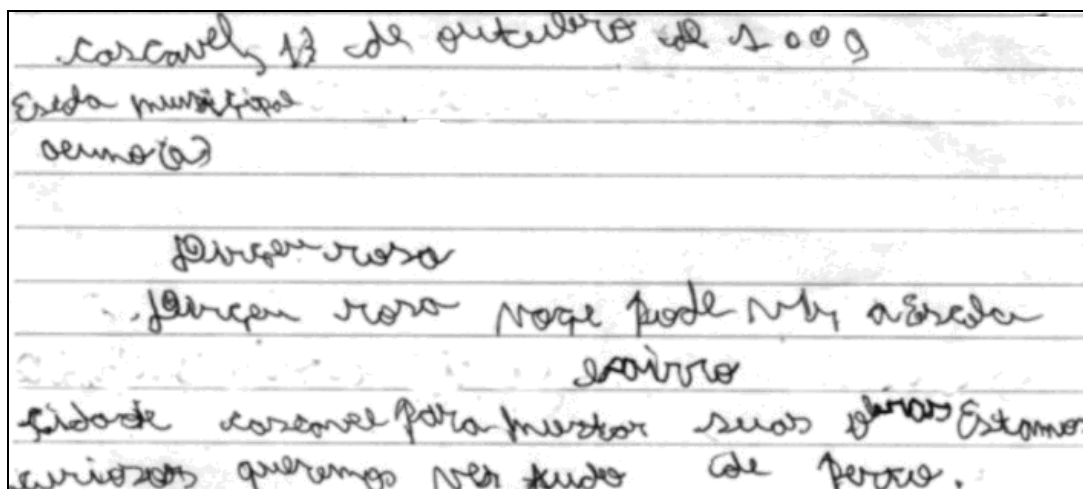 cascavel, 13 de outubro de 2009
Escola municipal
aluno(a)
Dirçeu rosa
Dirçeu rosa voçe pode vir, a Escola
bairro
çidade cascavel para mustar suas obras Estamos
curiosos queremos ver tudo de perto.